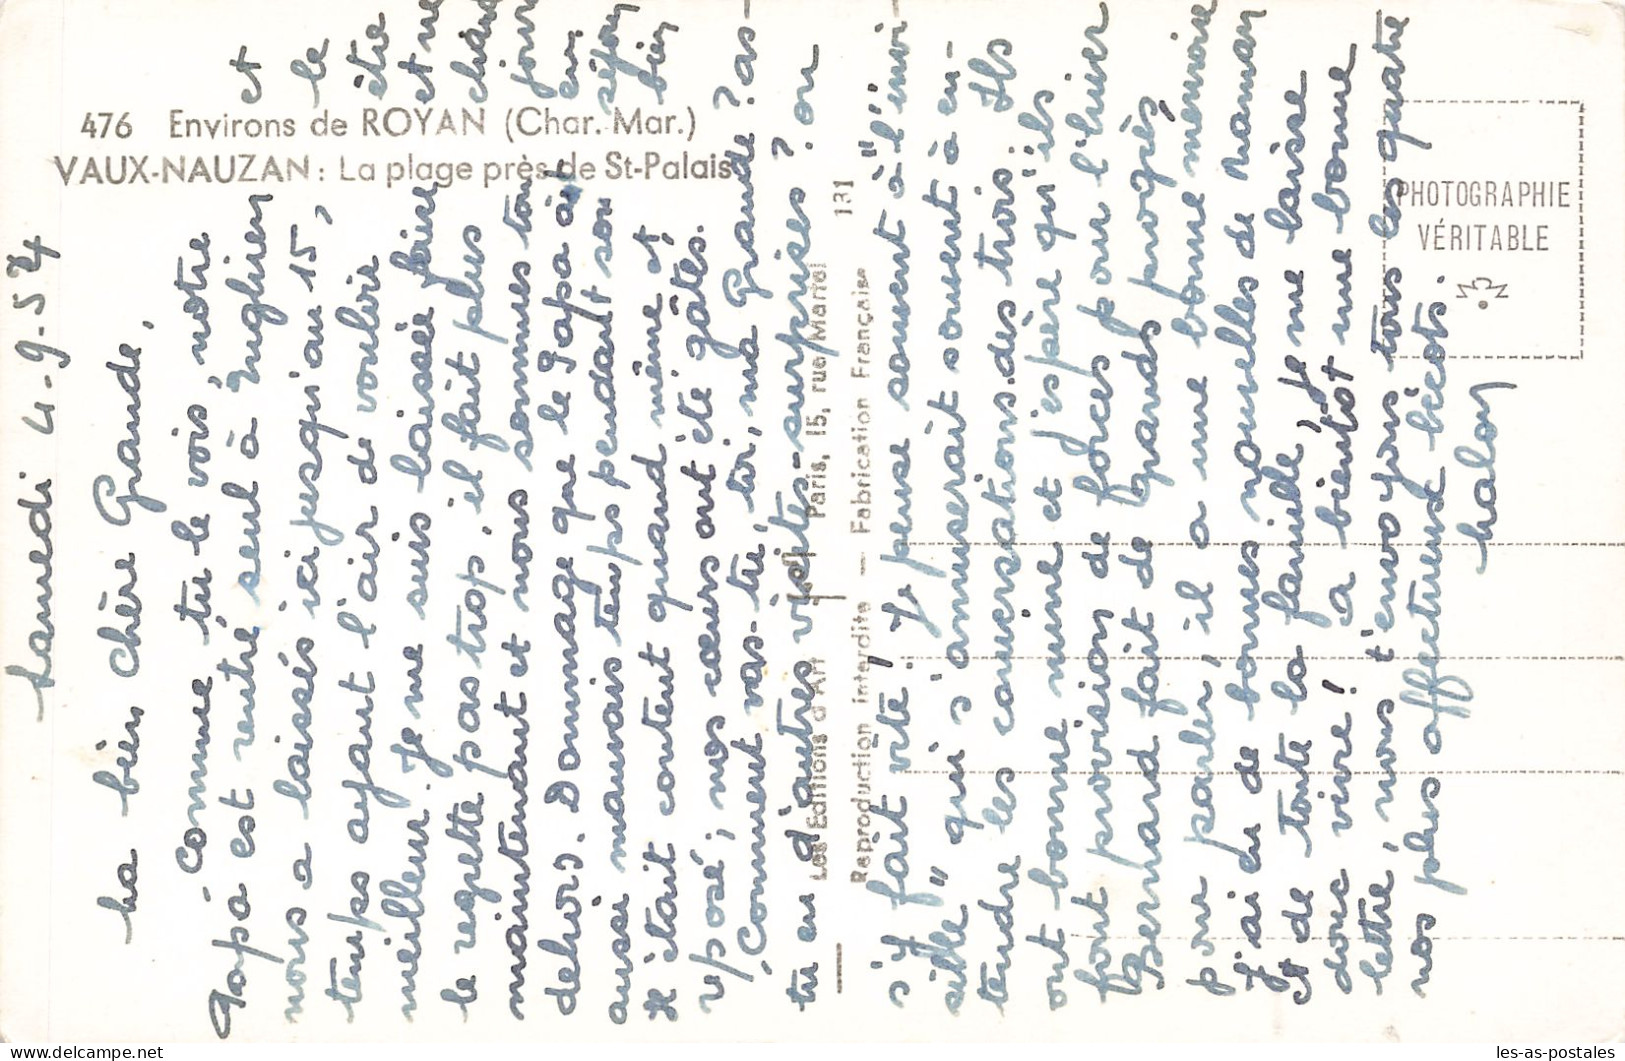 476 Environs de ROYAN (Char. Mar.)
VAUX-NAUZAN : La plage près de St-Palais
PHOTOGRAPHIE
VÉRITABLE
Les Editions d'Art Paris, 15, rue Martel
Reproduction interdite — Fabrication Française
131
Samedi 4-9-54
Ma bien chère Grande,
Comme tu le vois, notre
Papa est rentré seul à Enghien et
nous a laissés ici jusqu'au 15, le
temps ayant l'air de vouloir être
meilleur. Je me suis laissée faire et ne
le regrette pas trop, il fait plus
maintenant et nous sommes tous
dehors. Dommage que le Papa ait eu
aussi mauvais temps pendant son séjour
Il était content quand même et bien
reposé ; nos cœurs ont été gâtés.
Comment vas-tu, toi, ma Grande ? as-
tu eu d'autres visites-surprises ? on
s'y fait vite ! Je pense souvent à "l'invi-
sible" qui s'amuserait souvent à en-
tendre les conversations des trois. Ils
ont bonne mine et j'espère qu'ils
font provision de forces pour l'hiver
Bernard fait de grands progrès
pour parler, il a une bonne mémoire
J'ai eu de bonnes nouvelles de Maman
et de toute la famille, Je me laisse
donc vivre ! à bientôt une bonne
lettre, nous t'envoyons tous les quatre
nos plus affectueux bécots.
Malou
les-as-postales